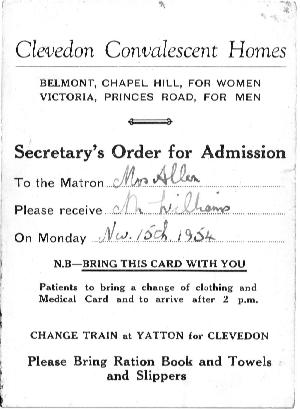 Clevedon Convalescent Homes
BELMONT, CHAPEL HILL, FOR WOMEN
VICTORIA, PRINCES ROAD, FOR MEN
Secretary's Order for Admission
To the Matron Mrs Allen
Please receive Mr Williams
On Monday Nov. 15th 1954
N.B—BRING THIS CARD WITH YOU
Patients to bring a change of clothing and
Medical Card and to arrive after 2 p.m.
CHANGE TRAIN at YATTON for CLEVEDON
Please Bring Ration Book and Towels
and Slippers